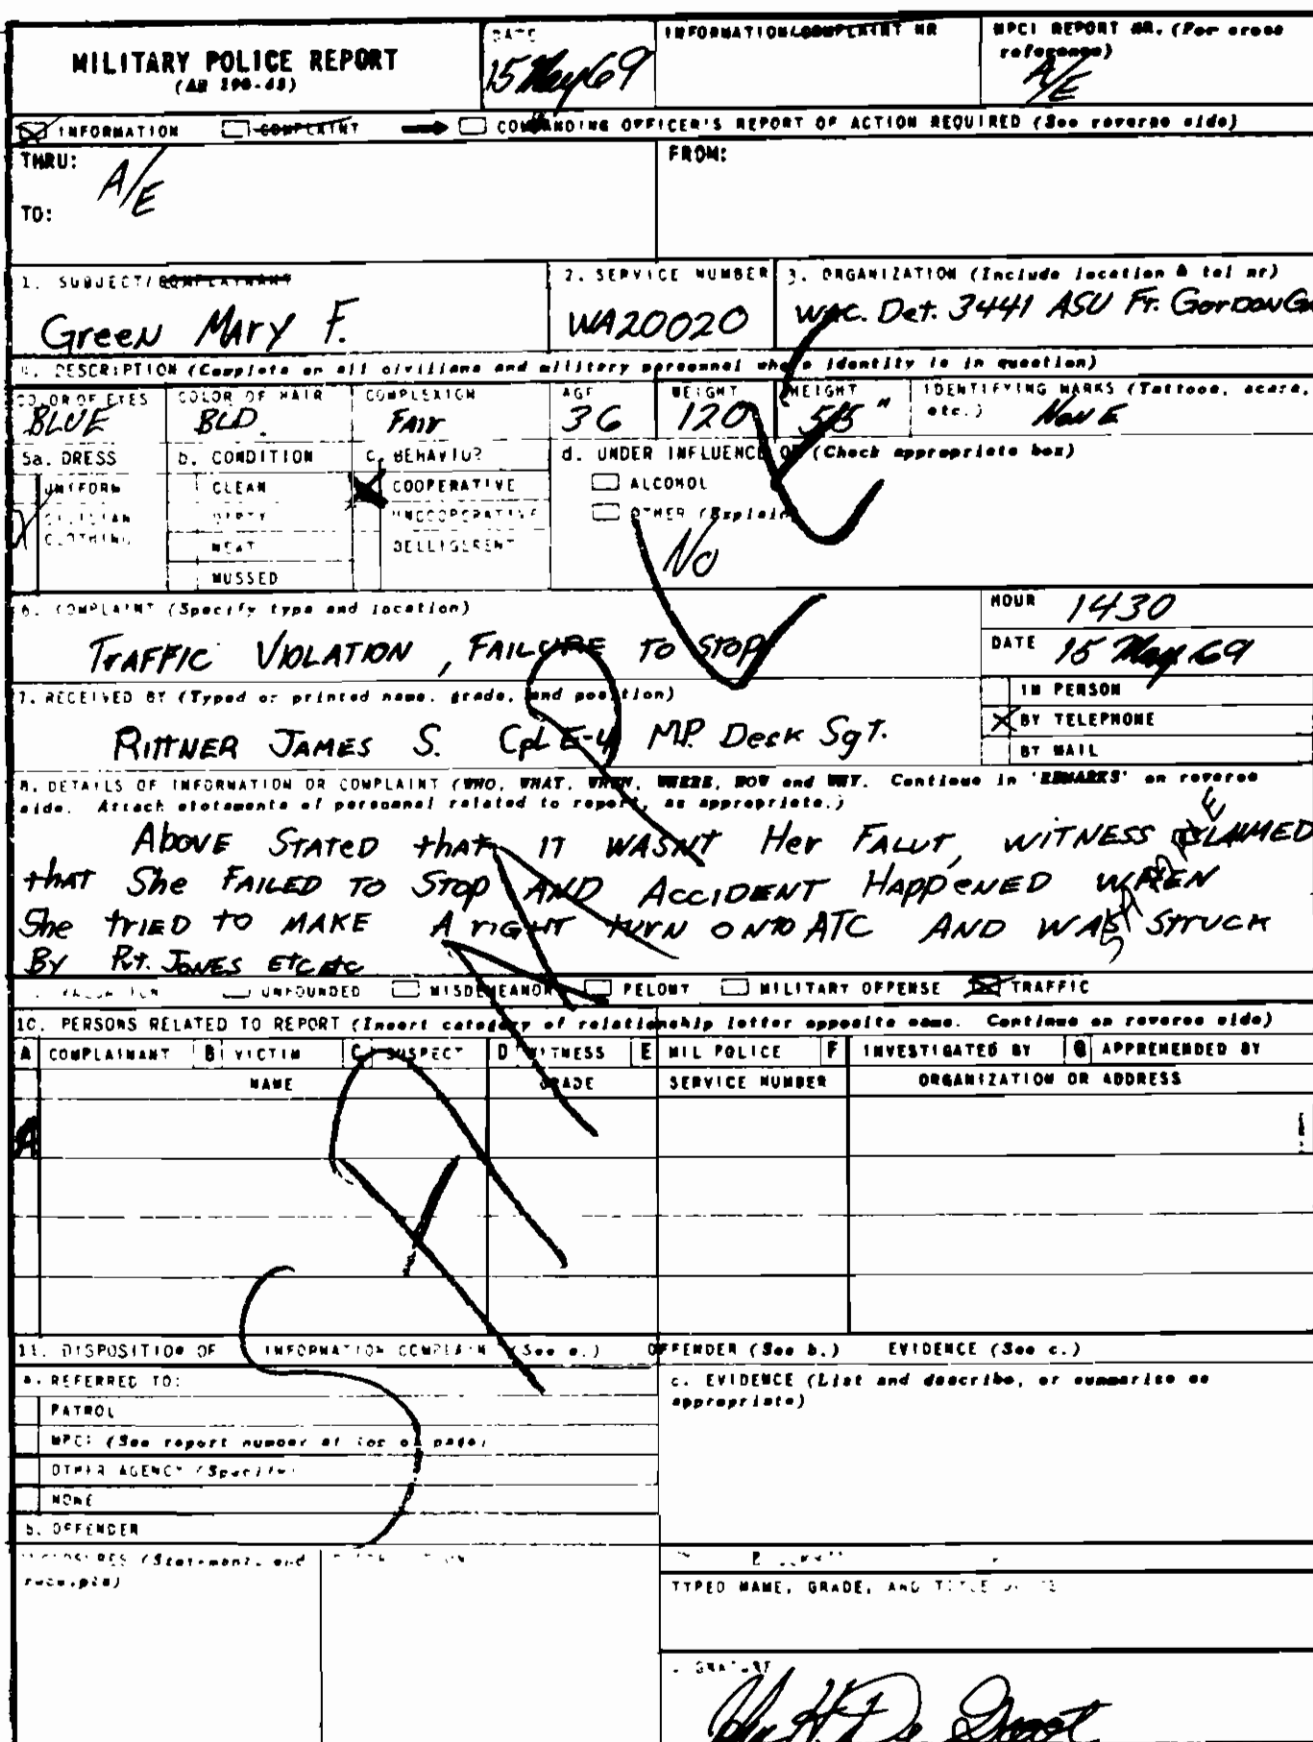 MILITARY POLICE REPORT
(AR 190-45)
DATE
15 May 69
INFORMATION/COMPLAINT NR
MPCI REPORT NR. (For cross reference)
A/E
INFORMATION COMPLAINT COMMANDING OFFICER'S REPORT OF ACTION REQUIRED (See reverse side)
THRU:
A/E
TO:
FROM:
1. SUBJECT/COMPLAINANT
Green Mary F.
2. SERVICE NUMBER
WA20020
3. ORGANIZATION (Include location & tel nr)
WAC. Det. 3441 ASU Ft. Gordon Ga
4. DESCRIPTION (Complete on all civilians and military personnel whose identity is in question)
COLOR OF EYES
BLUE
COLOR OF HAIR
BLD.
COMPLEXION
FAIr
AGE
36
WEIGHT
120
HEIGHT
5'5"
IDENTIFYING MARKS (Tattoos, scars, etc.)
NonE
5a. DRESS
UNIFORM
CIVILIAN CLOTHING
b. CONDITION
CLEAN
DIRTY
NEAT
MUSSED
c. BEHAVIOR
COOPERATIVE
UNCOOPERATIVE
BELLIGERENT
d. UNDER INFLUENCE OF (Check appropriate box)
ALCOHOL
OTHER (Explain)
No
6. COMPLAINT (Specify type and location)
TrAFFIC VIOLATION, FAILURE TO STOP
HOUR 1430
DATE 15 May 69
7. RECEIVED BY (Typed or printed name, grade, and position)
RITTNER JAMES S. Cpl E-4 M.P. Desk Sgt.
IN PERSON
BY TELEPHONE
BY MAIL
8. DETAILS OF INFORMATION OR COMPLAINT (WHO, WHAT, WHEN, WHERE, HOW and WHY. Continue in 'REMARKS' on reverse
side. Attach statements of personnel related to report, as appropriate.)
AbovE STATed that IT WASNT Her FALUT, WITNESS CLAIMED
that She FAILED TO STOP AND ACCIDENT HAppENED WHEN
She trIED TO MAKE A rIGHT TURN ONTO ATC AND WAS STRUCK
By Pvt. JONES ETC etc
UNFOUNDED MISDEMEANOR FELONY MILITARY OFFENSE TRAFFIC
10. PERSONS RELATED TO REPORT (Insert category of relationship letter opposite name. Continue on reverse side)
A COMPLAINANT B VICTIM C SUSPECT D WITNESS E MIL POLICE F INVESTIGATED BY G APPREHENDED BY
NAME GRADE SERVICE NUMBER ORGANIZATION OR ADDRESS
A
SAMPLE
11. DISPOSITION OF INFORMATION COMPLAINT (See a.) OFFENDER (See b.) EVIDENCE (See c.)
a. REFERRED TO:
PATROL
MPCI (See report number at top of page)
OTHER AGENCY (Specify)
NONE
b. OFFENDER
c. EVIDENCE (List and describe, or summarize as
appropriate)
ENCLOSURES (Statements and
receipts)
TYPED NAME, GRADE, AND TITLE
SIGNATURE